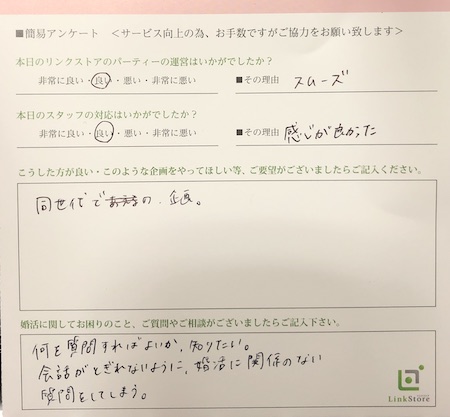 ■簡易アンケート　<サービス向上の為、お手数ですがご協力をお願い致します>
本日のリンクストアのパーティーの運営はいかがでしたか？
非常に良い・良い・悪い・非常に悪い　■その理由　スムーズ
本日のスタッフの対応はいかがでしたか？
非常に良い・良い・悪い・非常に悪い　■その理由　感じが良かった
こうした方が良い・このような企画をやってほしい等、ご要望がございましたらご記入ください。
同世代での、企画。
婚活に関してお困りのこと、ご質問やご相談がございましたらご記入下さい。
何を質問すればよいか、知りたい。
会話がとぎれないように、婚活に関係のない
質問をしてしまう。
LinkStore